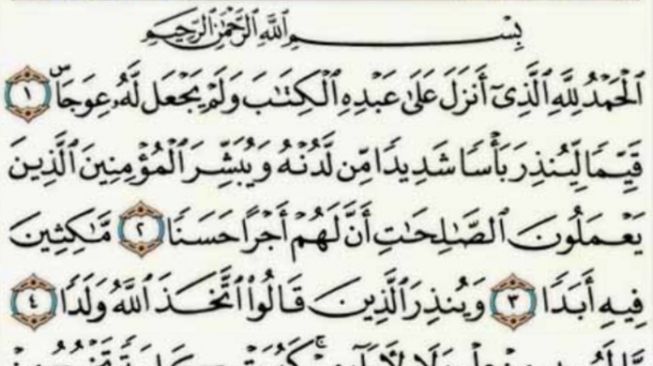 بِسْمِ اللَّهِ الرَّحْمَٰنِ الرَّحِيمِ
الْحَمْدُ لِلَّهِ الَّذِي أَنزَلَ عَلَىٰ عَبْدِهِ الْكِتَابَ وَلَمْ يَجْعَل لَّهُ عِوَجًا ۜ ١
قَيِّمًا لِّيُنذِرَ بَأْسًا شَدِيدًا مِّن لَّدُنْهُ وَيُبَشِّرَ الْمُؤْمِنِينَ الَّذِينَ
يَعْمَلُونَ الصَّالِحَاتِ أَنَّ لَهُمْ أَجْرًا حَسَنًا ٢ مَّاكِثِينَ
فِيهِ أَبَدًا ٣ وَيُنذِرَ الَّذِينَ قَالُوا اتَّخَذَ اللَّهُ وَلَدًا ٤